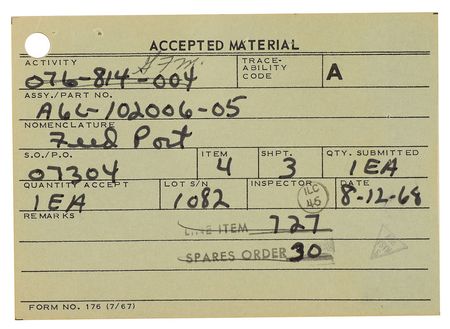 ACCEPTED MATERIAL
ACTIVITY
076-814-004
TRACE-
ABILITY
CODE
A
ASSY./PART NO.
A6L-102006-05
NOMENCLATURE
Feed Port
S.O./P.O. ITEM SHPT. QTY. SUBMITTED
07304 4 3 1EA
QUANTITY ACCEPT LOT S/N INSPECTOR DATE
1EA 1082 ILC 45 8-12-68
REMARKS
LINE ITEM 727
SPARES ORDER 30
FORM NO. 176 (7/67)